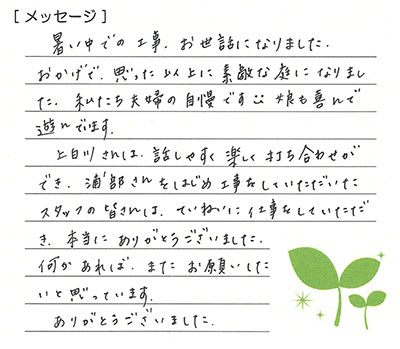 [ メッセージ ]
暑い中での工事、お世話になりました。
おかげで、思った以上に素敵な庭になりまし
た。私たち夫婦の自慢です 娘も喜んで
遊んでます。
上白川さんは、話しやすく楽しく打ち合わせが
でき、浦部さんをはじめ工事をしていただいた
スタッフの皆さんは、ていねいに仕事をしていただ
き、本当にありがとうございました。
何かあれば、またお願いした
いと思っています。
ありがとうございました。